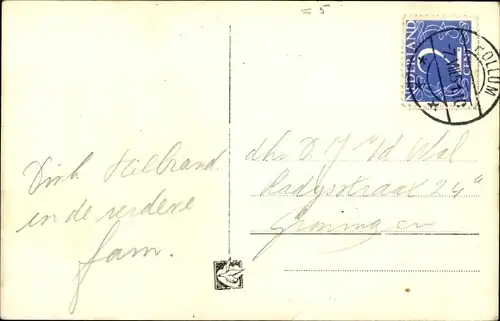 = 5
NEDERLAND
2
CENT
KOLLUM
Dirk Hilbrand
en de verdere
fam.
dhr D. J. v/d Wal
Radysstraat 24a
Groningen